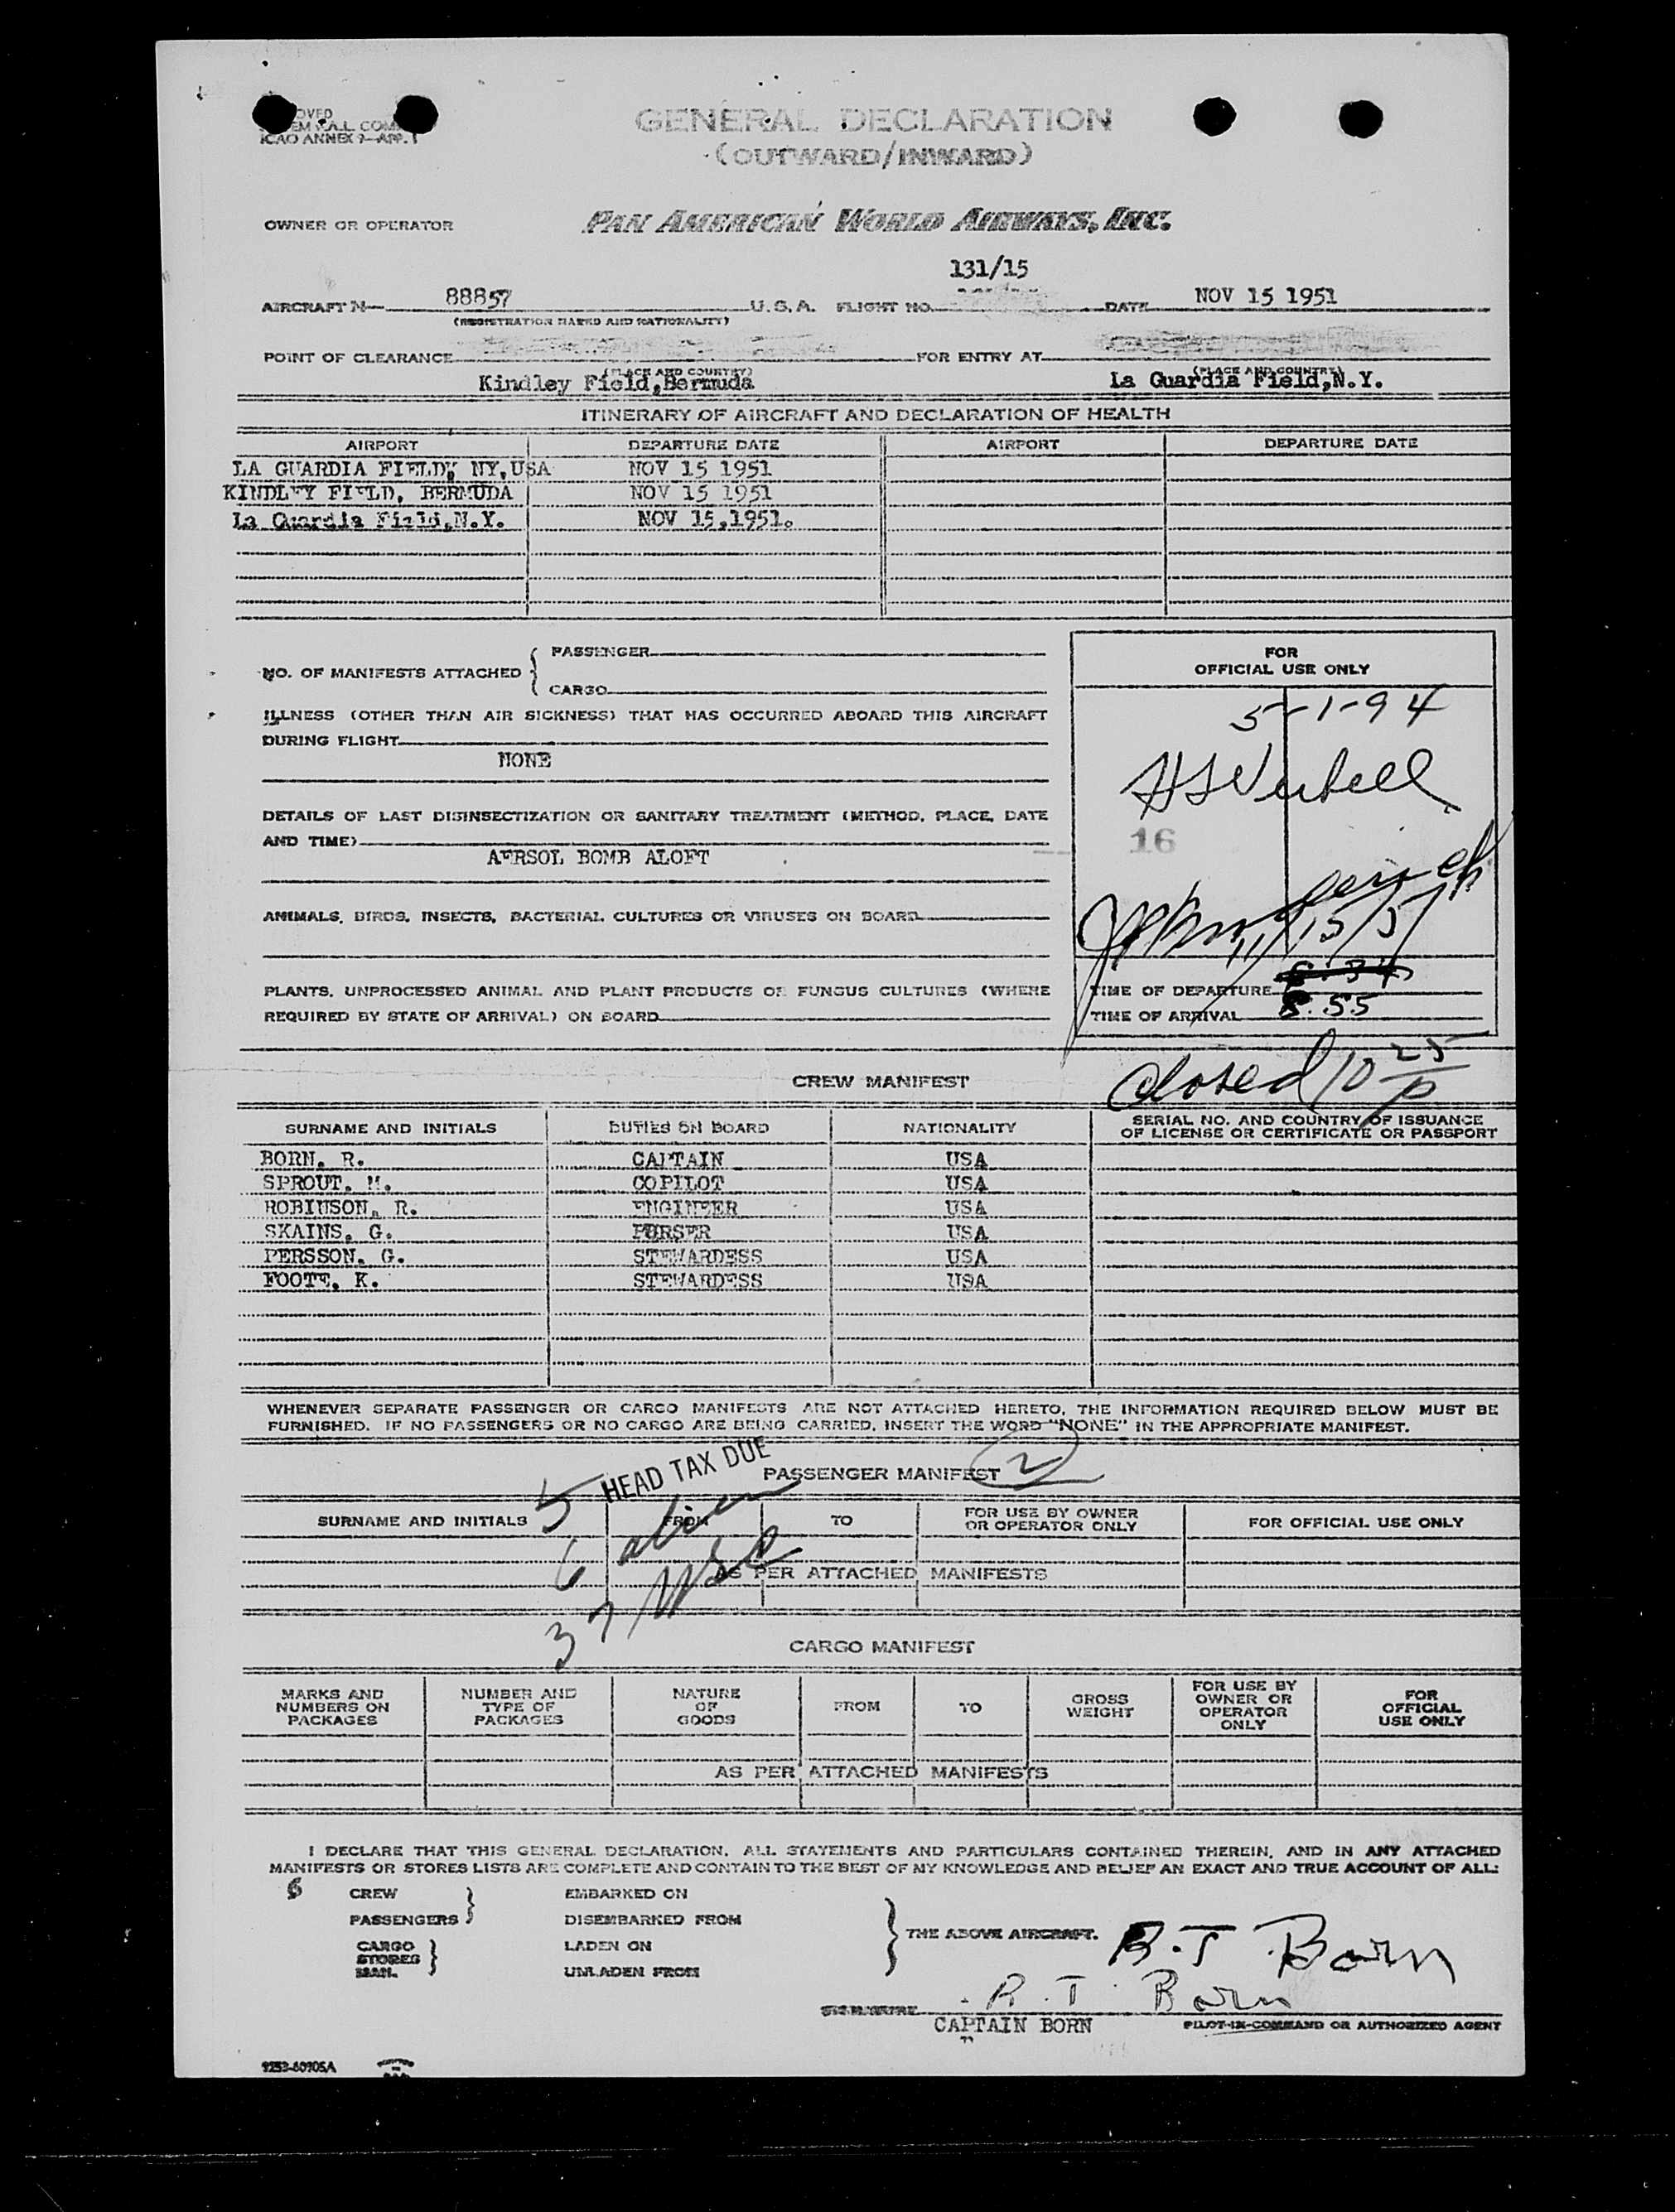 GENERAL DECLARATION
(OUTWARD/INWARD)
ICAO ANNEX 9—APP. 1
OWNER OR OPERATOR PAN AMERICAN WORLD AIRWAYS, INC.
131/15
AIRCRAFT N— 88857 U.S.A. FLIGHT NO. DATE NOV 15 1951
(REGISTRATION MARKS AND NATIONALITY)
POINT OF CLEARANCE FOR ENTRY AT
(PLACE AND COUNTRY) (PLACE AND COUNTRY)
Kindley Field,Bermuda La Guardia Field,N.Y.
ITINERARY OF AIRCRAFT AND DECLARATION OF HEALTH
AIRPORT DEPARTURE DATE AIRPORT DEPARTURE DATE
LA GUARDIA FIELD, NY,USA NOV 15 1951
KINDLEY FIELD, BERMUDA NOV 15 1951
La Guardia Field,N.Y. NOV 15,1951.
NO. OF MANIFESTS ATTACHED { PASSENGER
CARGO
ILLNESS (OTHER THAN AIR SICKNESS) THAT HAS OCCURRED ABOARD THIS AIRCRAFT
DURING FLIGHT
NONE
DETAILS OF LAST DISINSECTIZATION OR SANITARY TREATMENT (METHOD, PLACE, DATE
AND TIME)
AERSOL BOMB ALOFT
ANIMALS, BIRDS, INSECTS, BACTERIAL CULTURES OR VIRUSES ON BOARD
PLANTS, UNPROCESSED ANIMAL AND PLANT PRODUCTS OR FUNGUS CULTURES (WHERE
REQUIRED BY STATE OF ARRIVAL) ON BOARD
FOR
OFFICIAL USE ONLY
5-1-94
16
11/15/51
TIME OF DEPARTURE
TIME OF ARRIVAL 8.55
Closed 10 25/p
CREW MANIFEST
SURNAME AND INITIALS DUTIES ON BOARD NATIONALITY SERIAL NO. AND COUNTRY OF ISSUANCE
OF LICENSE OR CERTIFICATE OR PASSPORT
BORN, R. CAPTAIN USA
SPROUT, M. COPILOT USA
ROBINSON, R. ENGINEER USA
SKAINS, G. PURSER USA
PERSSON, G. STEWARDESS USA
FOOTE, K. STEWARDESS USA
WHENEVER SEPARATE PASSENGER OR CARGO MANIFESTS ARE NOT ATTACHED HERETO, THE INFORMATION REQUIRED BELOW MUST BE
FURNISHED. IF NO PASSENGERS OR NO CARGO ARE BEING CARRIED, INSERT THE WORD "NONE" IN THE APPROPRIATE MANIFEST.
5 HEAD TAX DUE
PASSENGER MANIFEST 2
SURNAME AND INITIALS FROM TO FOR USE BY OWNER
OR OPERATOR ONLY FOR OFFICIAL USE ONLY
6 alien
37 USC
AS PER ATTACHED MANIFESTS
CARGO MANIFEST
MARKS AND
NUMBERS ON
PACKAGES
NUMBER AND
TYPE OF
PACKAGES
NATURE
OF
GOODS
FROM
TO
GROSS
WEIGHT
FOR USE BY
OWNER OR
OPERATOR
ONLY
FOR
OFFICIAL
USE ONLY
AS PER ATTACHED MANIFESTS
I DECLARE THAT THIS GENERAL DECLARATION, ALL STATEMENTS AND PARTICULARS CONTAINED THEREIN, AND IN ANY ATTACHED
MANIFESTS OR STORES LISTS ARE COMPLETE AND CONTAIN TO THE BEST OF MY KNOWLEDGE AND BELIEF AN EXACT AND TRUE ACCOUNT OF ALL:
6 CREW EMBARKED ON
PASSENGERS DISEMBARKED FROM
THE ABOVE AIRCRAFT. R.T Born
CARGO LADEN ON
STORES
UNLADEN FROM
SIGNATURE R.T. Born
CAPTAIN BORN PILOT-IN-COMMAND OR AUTHORIZED AGENT
9253-60905A